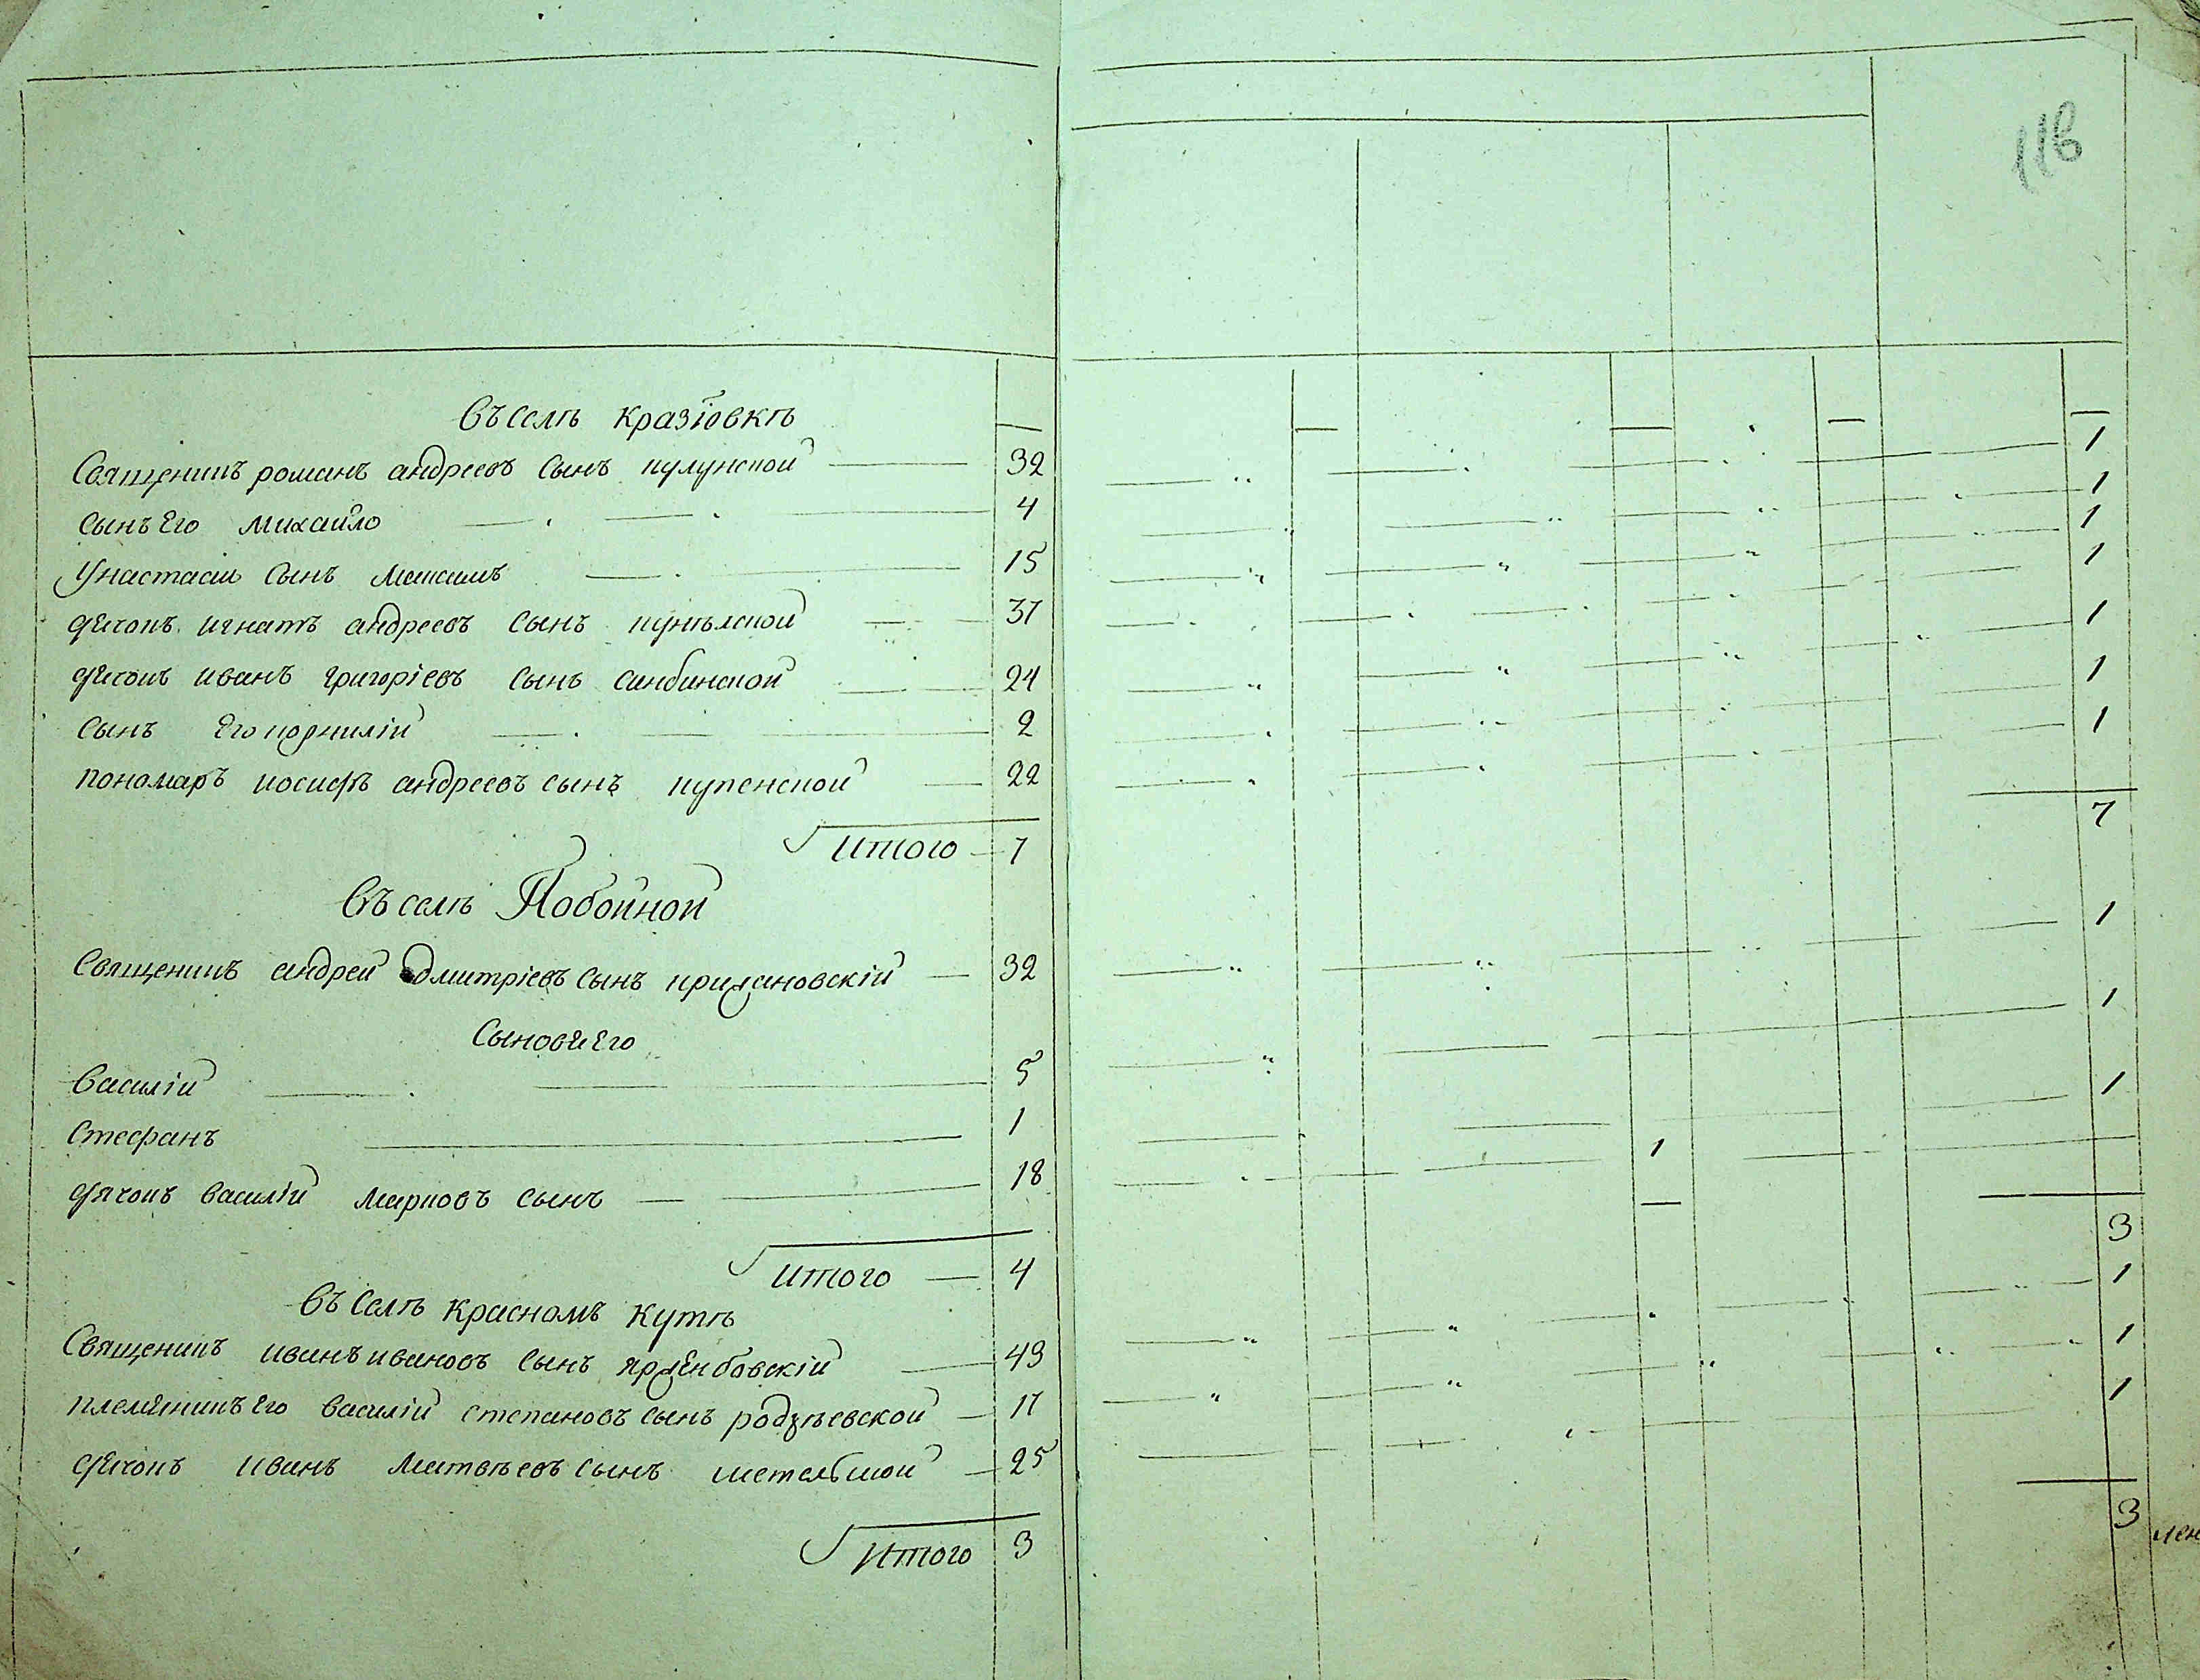 118
Въ селѣ Кразіовкѣ
Священикъ романъ андреевъ сынъ кулунской 32 1
сынъ Его михаило 4 1
У настасіи сынъ максимъ 15 1
дѣчокъ игнатъ андреевъ сынъ 37 1
дѣчокъ иванъ григоріевъ сынъ санбинской 24 1
сынъ Его корнилій 2 1
пономаръ иосифъ андреевъ сынъ купенской 22 1
Итого 7 7
Въ селѣ Побойной
Священикъ андрей дмитріевъ сынъ крижановскій 32 1
Сыновѣ Его
Василій 5 1
Стефанъ 1 1
дячокъ василій марковъ сынъ 18 1
Итого 4 3
Въ Селѣ Красномъ Кутѣ
Священикъ иванъ ивановъ сынъ 43 1
племѣникъ Его василій степановъ сынъ родзѣевской 17 1
дѣчокъ иванъ матвѣевъ сынъ 25 1
Итого 3 3